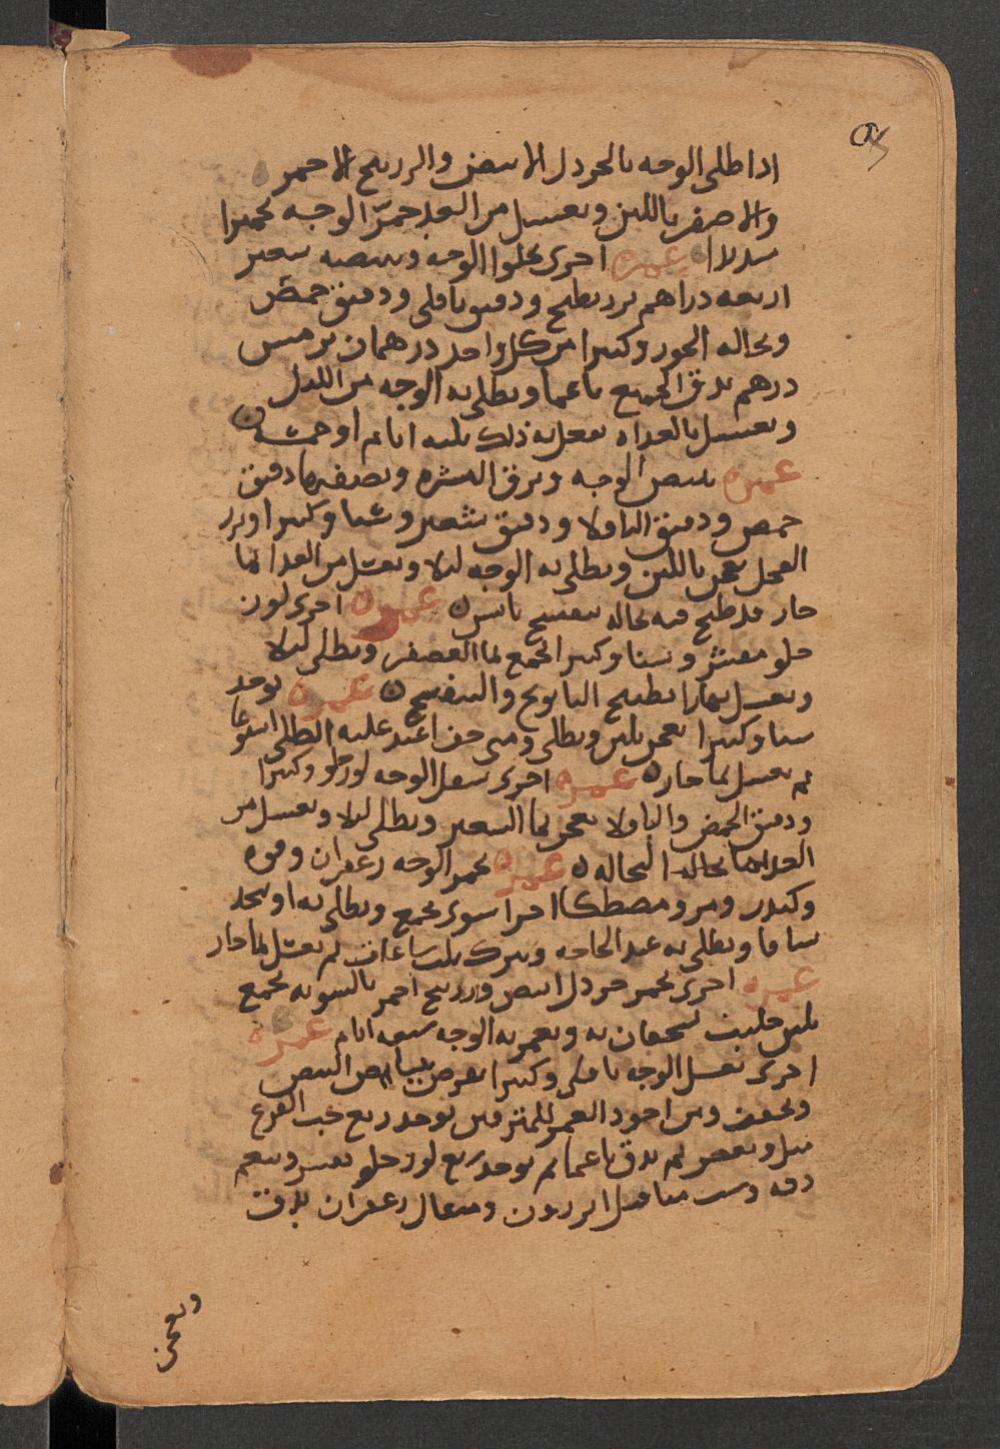 اذا طلى الوجه بالخردل الابيض والزرنيخ الاحمر
والاصفر باللبن ويغسل من الغد حمّر الوجه تحميرا
غمره اخرى تجلوا الوجه وتبيضه شعير
اربعه دراهم بزر بطيخ ودقيق باقلى ودقيق حمص
وكثيرا من كل واحد درهمان ترمس
درهم يدق الجميع ناعما ويطلى به الوجه من الليل
ويغسل بالغداه يفعل به ذلك ثلثه ايام او خمسه
غمره تبيض الوجه وترق البشره وتصفيها دقيق
حمص ودقيق الباقلا ودقيق شعير ونشا وكثيرا وبزر
الفجل يعجن باللبن ويطلى به الوجه ليلا ويغسل من الغد بما
حار قد طبخ فيه نخاله بنفسج يابس غمره اخرى لوز
حلو مقشر ونشا وكثيرا يجمع بما العصفر ويطلى ليلا
ويغسل نهارا بطبيخ البابونج والبنفسج غمره يوخذ
نشا وكثيرا يعجن بلبن ويطلى ومتى جف اعيد عليه الطلى اسبوعا
ثم يغسل بما حار غمره اخرى تصقل الوجه لوز حلو وكثيرا
ودقيق الحمص والباقلا يعجن بما الشعير ويطلى ليلا ويغسل من
الغد النخاله غمره تحمر الوجه زعفران وفوه
وكندر ومر ومصطكا اجزا سوى يجمع ويطلى به او يتخذ
شيافا ويطلى به عند الحاجه ويترك ثلث ساعات ثم يغسل بما حار
غمره اخرى تحمر خردل ابيض وزرنيخ احمر بالسويه يجمع
بلبن حليب يسحقان به ويغمر به الوجه سبعه ايام غمره
اخرى تغسل الوجه باقلى وكثيرا يقرص ببياض البيض
ويجفف ومن اجود الغمر للمترفين يوخذ ربع حب القرع
يبل ويقشر ثم يدق ناعما ثم يوخذ ربع لوز حلو يقشر وينعم
دقه وست مثاقيل ومثقال زعفران يدق
ويعجن